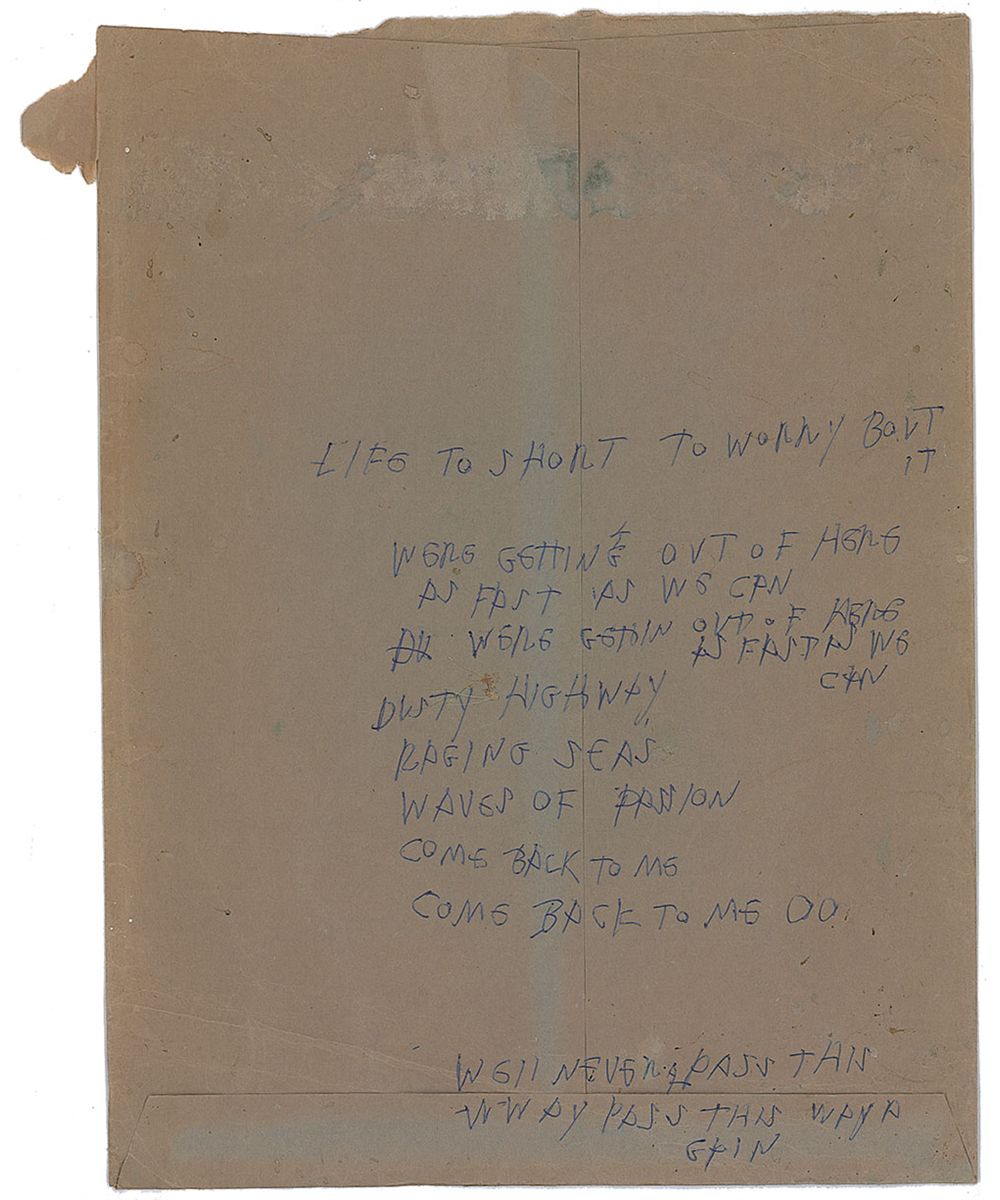 LIFE TO SHORT TO WORRY BOUT
IT
WERE GETTING OUT OF HERE
AS FAST AS WE CAN
WERE GETTIN OUT OF HERE
AS FAST AS WE
CAN
DUSTY HIGHWAY
RAGING SEAS
WAVES OF PASSION
COME BACK TO ME
COME BACK TO ME OO
WEll NEVER PASS THIS
WWAY PASS THIS WAY A
GAIN